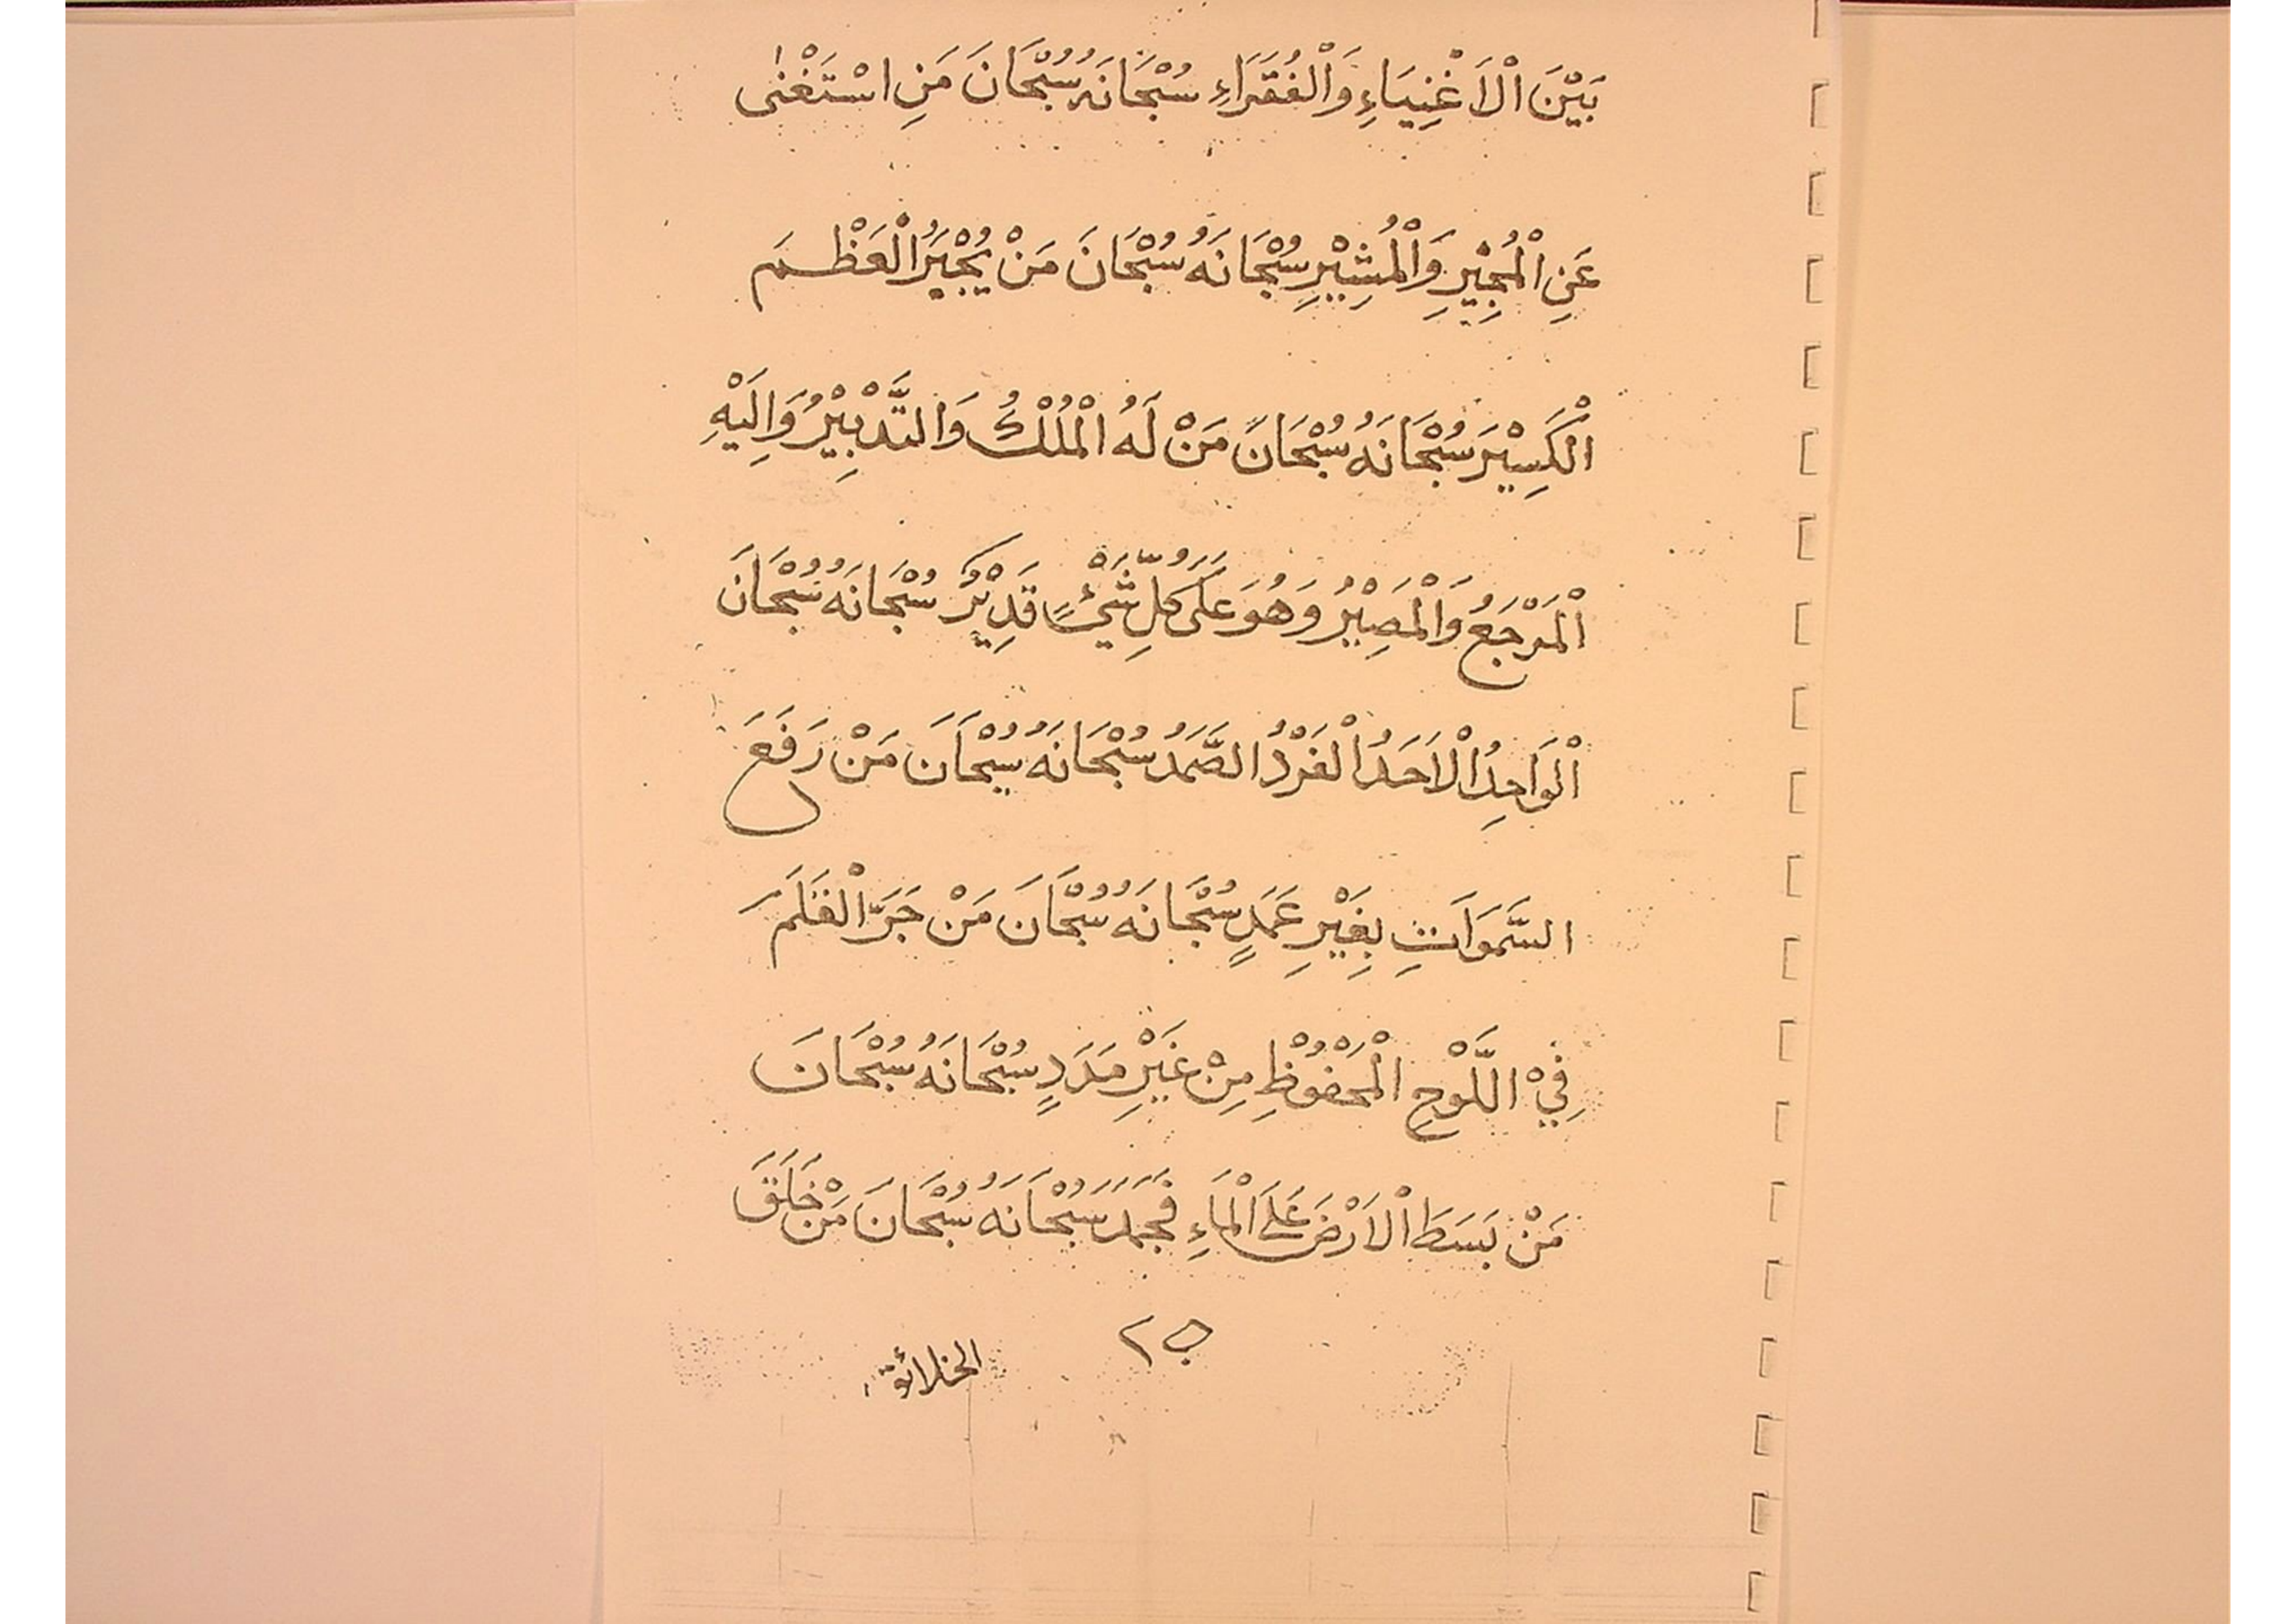 بَيْنَ الْاَغْنِيَاءِ وَالْفُقَرَاءِ سُبْحَانَهُ سُبْحَانَ مَنِ اسْتَغْنٰى
عَنِ الْمُجِيْرِ وَالْمُشِيْرِ سُبْحَانَهُ سُبْحَانَ مَنْ يُجْبِيْرُ الْعَظْمَ
الْكَسِيْرَ سُبْحَانَهُ سُبْحَانَ مَنْ لَهُ الْمُلْكُ وَالتَّدْبِيْرُ وَاِلَيْهِ
الْمَرْجَعُ وَالْمَصِيْرُ وَهُوَ عَلَى كُلِّ شَيْءٍ قَدِيْرٌ سُبْحَانَهُ سُبْحَانَ
الْوَاحِدُ الْاَحَدُ الْفَرْدُ الصَّمَدُ سُبْحَانَهُ سُبْحَانَ مَنْ رَفَعَ
السَّمَوَاتِ بِغَيْرِ عَمَدٍ سُبْحَانَهُ سُبْحَانَ مَنْ جَرَّ الْقَلَمَ
فِيْ اللَّوْحِ الْمَحْفُوْظِ مِنْ غَيْرِ مَدَدٍ سُبْحَانَهُ سُبْحَانَ
مَنْ بَسَطَ الْاَرْضَ عَلَى الْمَاءِ فَجَمَدَ سُبْحَانَهُ سُبْحَانَ مَنْ خَلَقَ
٢٥
الخلائق